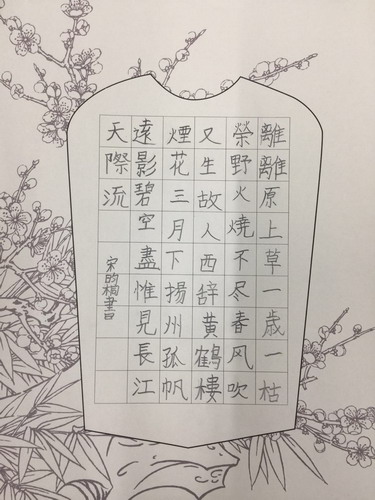 離離原上草一歳一枯
榮野火燒不尽春风吹
又生故人西辞黄鶴樓
煙花三月下揚州孤帆
遠影碧空盡惟見長江
天際流
宋昀桐書